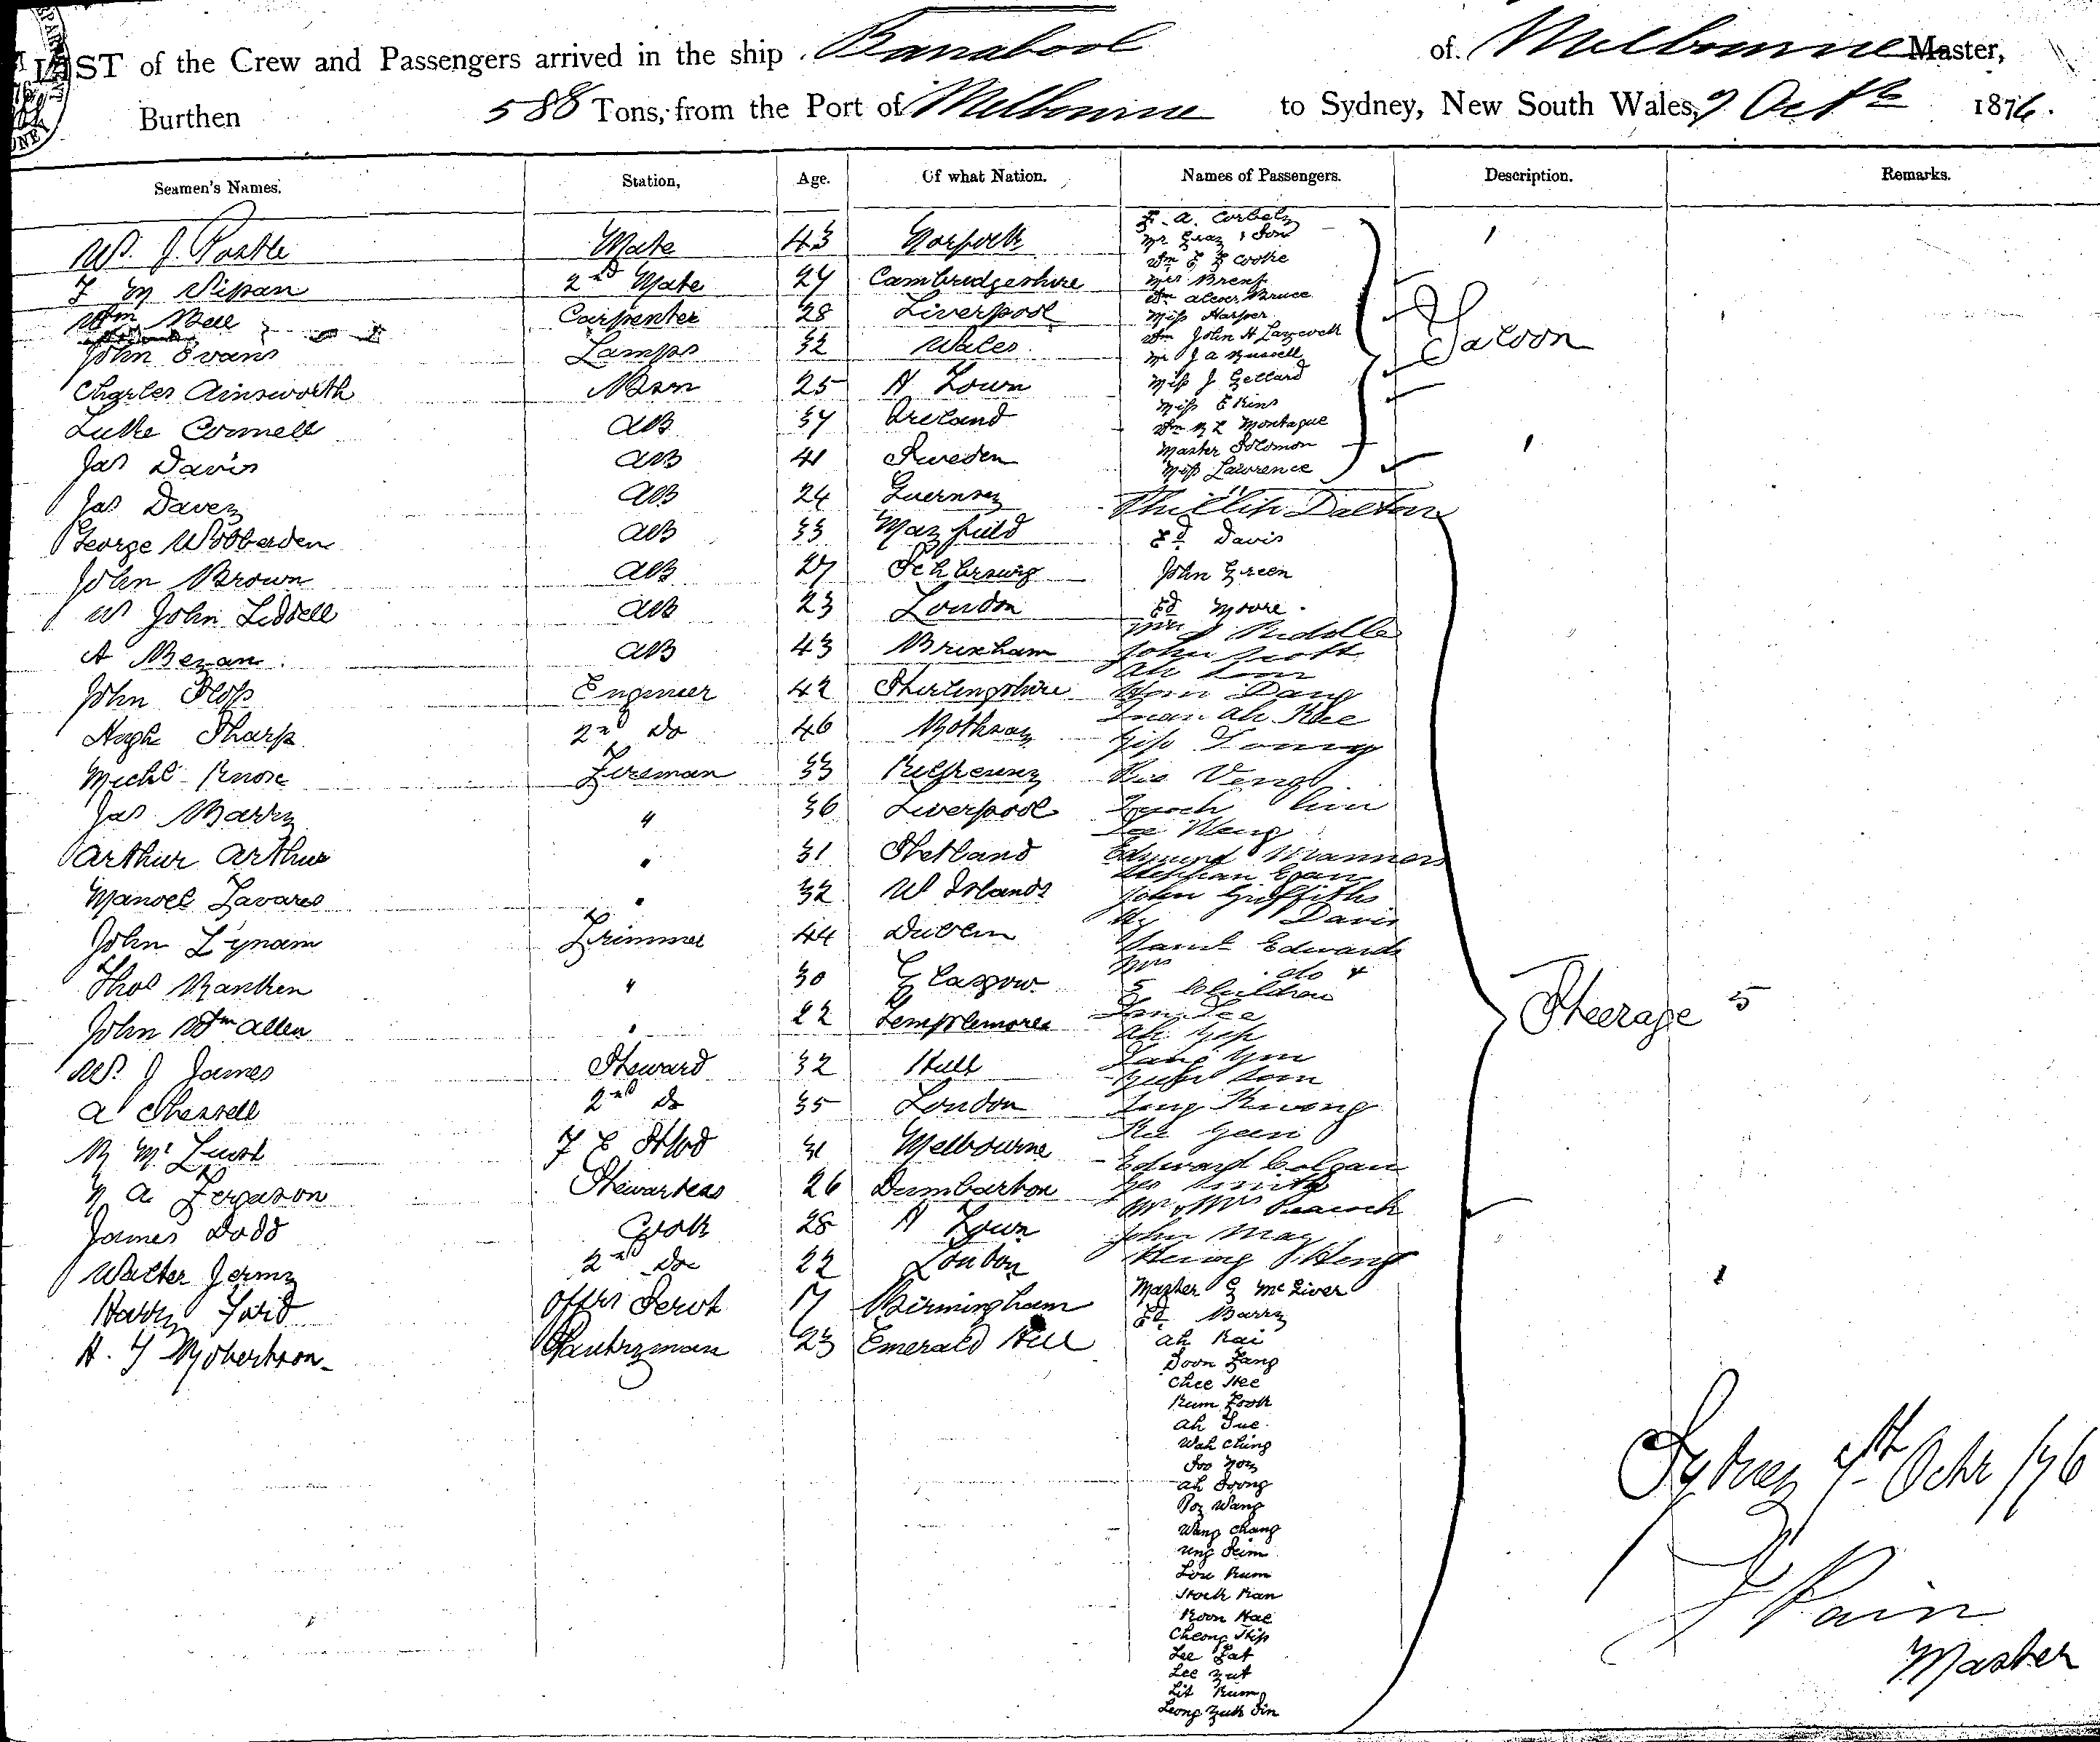 LIST of the Crew and Passengers arrived in the ship Barrabool of Melbourne Master,
Burthen 588 Tons, from the Port of Melbourne to Sydney, New South Wales, 7 Octr 1876.
Seamen's Names. Station, Age. Of what Nation. Names of Passengers. Description. Remarks.
W. J. Postle Mate 43 Norfolk
F M Sipan 2nd Mate 27 Cambridgeshire
Wm Bell Carpenter 28 Liverpool
John Evans Lamps 32 Wales
Charles Ainsworth 25 H Town
Luke Connell AB 37 Ireland
Jas Davis AB 41 Sweden
Jas Davey AB 24 Guernsey
George Wobberden AB 33 Mayfield
John Brown AB 27
W John Liddell AB 23 London
A Bezan AB 43 Brixham
John Sloss Engineer 42 Sterlingshire
Hugh Sharp 2nd Do 46 Rothsay
Michl Knox Fireman 33
Jas Barry " 36 Liverpool
Arthur Arthur " 31 Shetland
Manoel Tavares " 32 W Islands
John Lynam Trimmer 44 Dublin
Thos Rankin " 30 Glasgow
John Wm Allen " 22 Templemore
W. J James Steward 32 Hull
A Shessell 2nd Do 35 London
R Mc 31 Melbourne
N A Ferguson Stewardess 26 Dumbarton
James Dodd Cook 28 H Town
Walter Jermy 2nd Do 22 London
Harry Ford Offrs Servt 17 Birmingham
H. J Robertson Pantryman 23 Emerald Hill
F. A. Corbely
Mr Gray & Son
Wm F F Cooke
Mrs Brent
Wm Alexr Bruce
Miss Harper
Wm John H Laycock
Mr J A Russell
Miss J Gellard
Miss Ekins
Wm R L Montague
Master Solomon
Miss Lawrence
Saloon
Phillip Dalton
Ed Davis
John Green
Ed Moore
Mrs J Riddle
John Scott
Ah
Hom Dang
Ah Kee
Young
Lee Weng
Edmund Manners
Stephan Egan
John Griffiths
Hy Davis
Saml Edwards
Mrs do &
5 Children
Ah Yep
Tang Yon
Kwong
Edward Colgan
Geo Smith
Mr & Mrs Peacock
John May
Heng
Master G McLiver
Ed Barry
Ah Kai
Soon Fang
Chee Hee
Kum Fook
Ah Sue
Wah Ching
Foo Noy
Ah Foong
Poy Wang
Wang Chang
Ung Seim
Low Kum
Hock Kan
Koon Hae
Cheong Ship
Lee Fat
Lee Yut
Lit Kum
Leong Yuk Sin
Steerage 5
Sydney 7th Octr /76
F Pain
Master